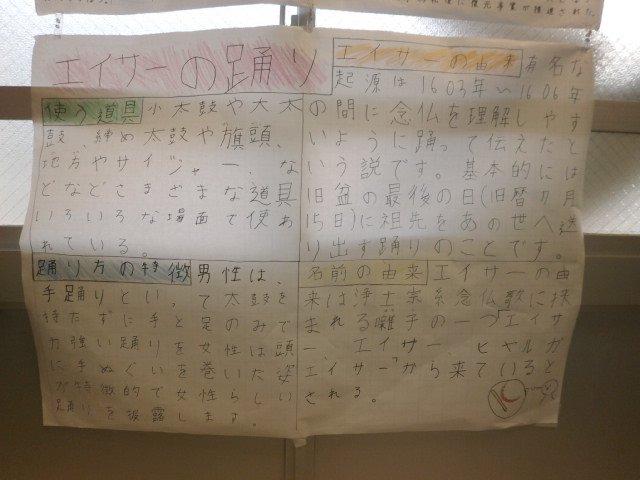 エイサーの踊り
使う道具 小太鼓や大太
鼓、締め太鼓や旗頭、
地方やサイジャー、な
どなどさまざまな道具
いろいろな場面で使わ
れている。
踊り方の特徴 男性は、
手踊りといって太鼓を
持たずに手と足のみで
力強い踊りを女性は頭
に手ぬぐいを巻いた姿
が特徴的で女性らしい
踊りを披露します。
エイサーの由来 有名な
起源は1603年〜1606年
の間に念仏を理解しやす
いように踊って伝えたと
いう説です。基本的には
旧盆の最後の日(旧暦7月
15日)に祖先をあの世へ送
り出す踊りのことです。
名前の由来 エイサーの由
来は浄土宗系念仏歌に挟
まれる囃子の一つ「エイサ
ー、エイサー、ヒヤルガ
エイサー」から来ていると
される。